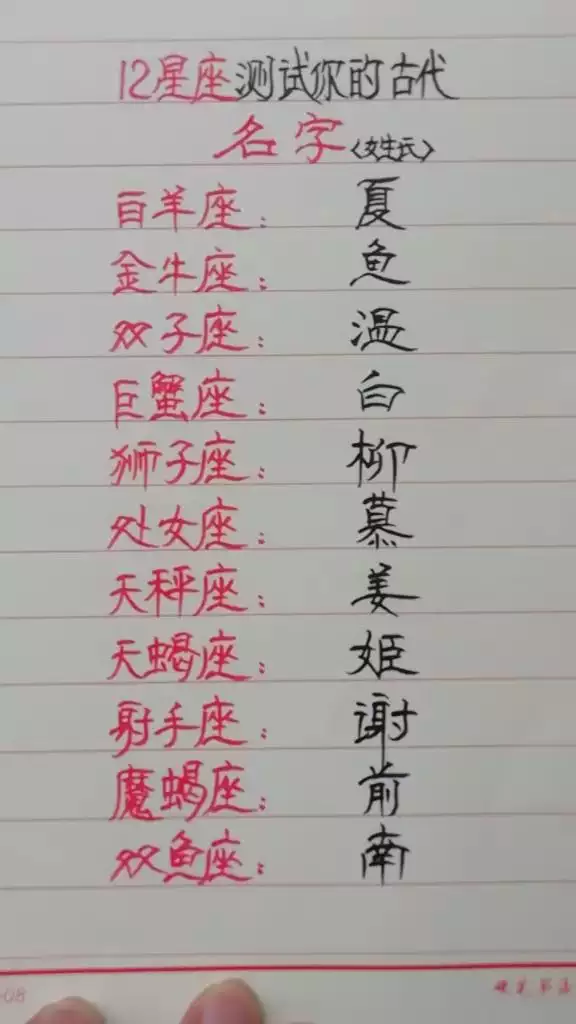 12星座测试你的古代
名字〈姓氏〉
白羊座： 夏
金牛座： 鱼
双子座： 温
巨蟹座： 白
狮子座： 柳
处女座： 慕
天秤座： 姜
天蝎座： 姬
射手座： 谢
魔蝎座： 前
双鱼座： 南
-08
硬笔书法